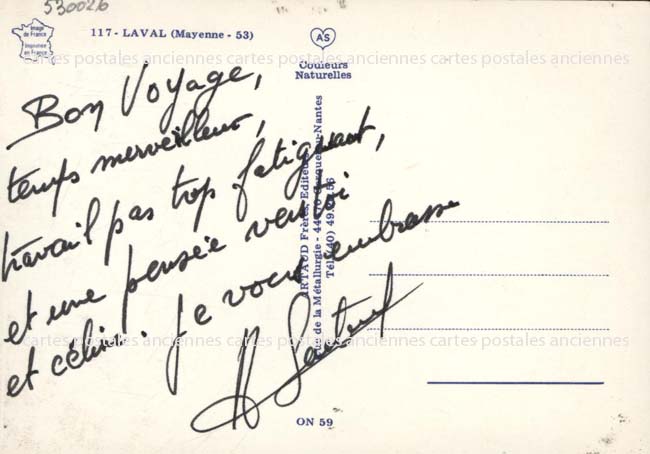 530026
Image
de France
Imprimée
en France
117 - LAVAL (Mayenne - 53)
AS
Couleurs
Naturelles
cartes postales anciennes cartes postales anciennes cartes postales anciennes
Bon Voyage,
temps merveilleux,
travail pas trop fatiguant,
et une pensée vers toi
et célin. Je vous embrasse
ARTAUD Frères, Editeurs
Rue de la Métallurgie - 44470 Carquefou-Nantes
Tél. (40) 49.
56
cartes postales anciennes cartes postales anciennes cartes postales anciennes
ON 59